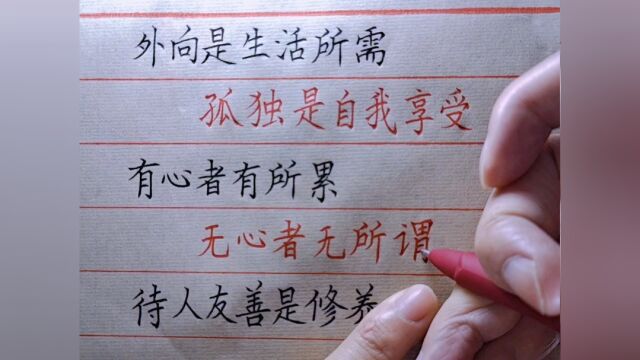 外向是生活所需
孤独是自我享受
有心者有所累
无心者无所谓
待人友善是修养